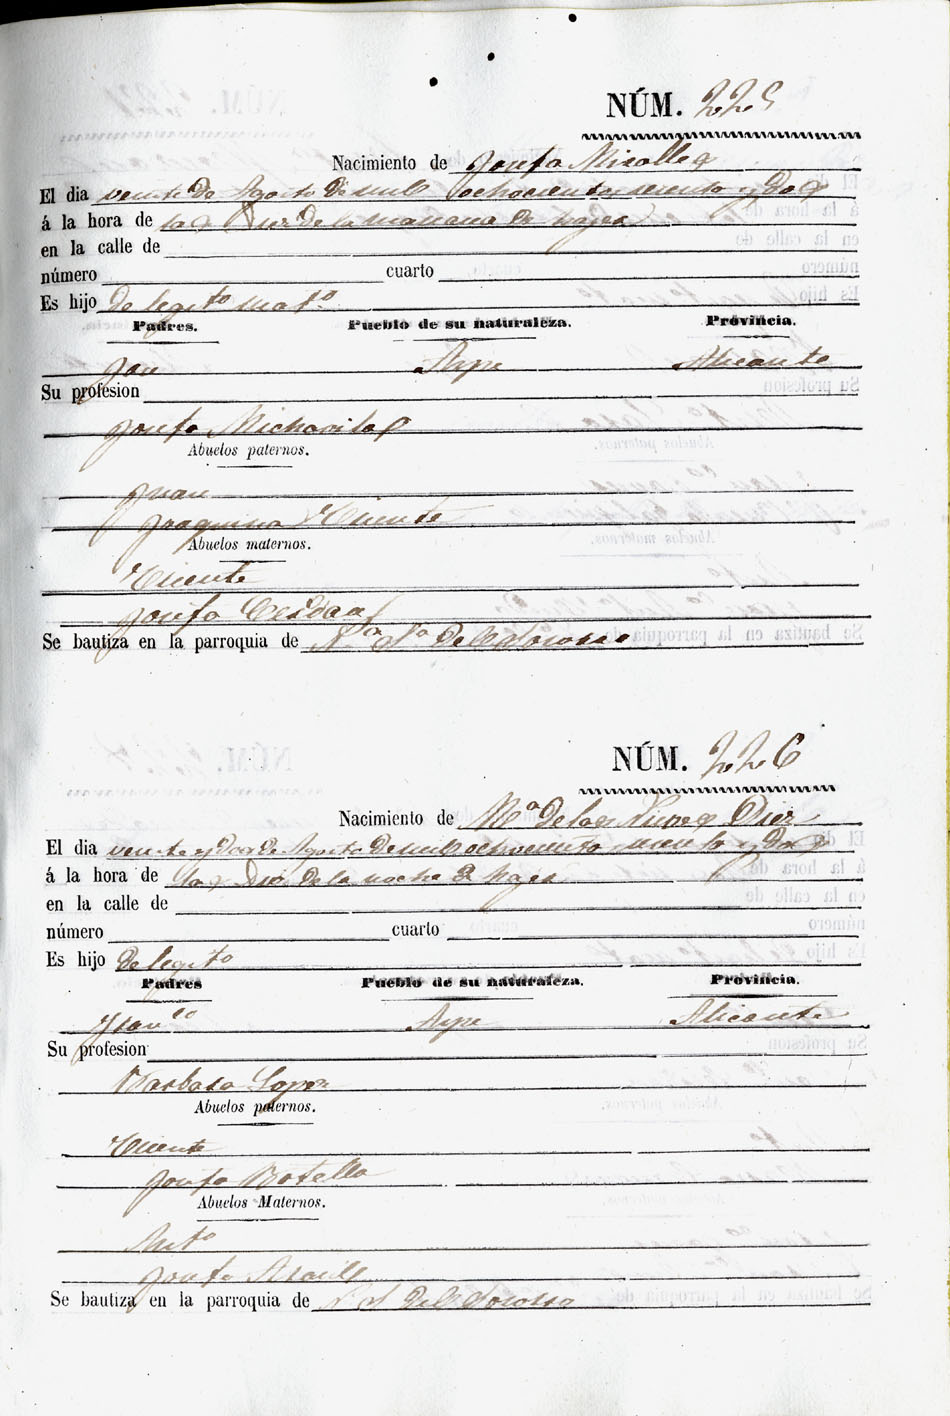 NÚM. 225
Nacimiento de Josefa Miralles
El dia veinte de Agosto de mil ochocientos sesenta y dos
á la hora de las Diez de la mañana de
en la calle de
número cuarto
Es hijo de legito mato
Padres. Pueblo de su naturaleza. Provincia.
Aspe Alicante
Su profesion
Josefa
Abuelos paternos.
Juan
Joaquina Vicente
Abuelos maternos.
Vicente
Josefa Cerdan
Se bautiza en la parroquia de Na Sa del Socorro
NÚM. 226
Nacimiento de Ma de las Nieves Diez
El dia veinte y dos de Agosto de mil ochociento sesenta y dos
á la hora de las Diez de la noche de
en la calle de
número cuarto
Es hijo de legito
Padres Pueblo de su naturaleza. Provincia.
Franco Aspe Alicante
Su profesion
Barbara Lopez
Abuelos paternos.
Vicente
Josefa Botella
Abuelos Maternos.
Anto
Josefa
Se bautiza en la parroquia de N. S. del Socorro